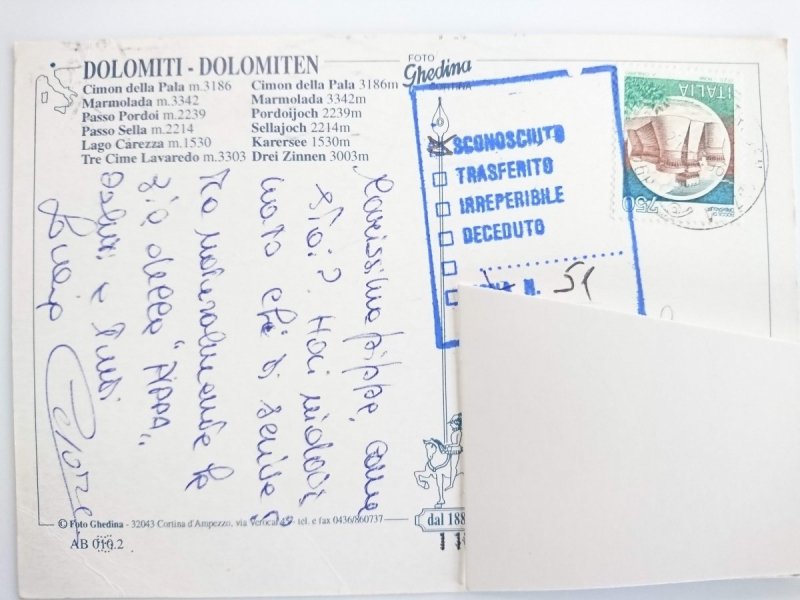 DOLOMITI - DOLOMITEN
Cimon della Pala m.3186
Marmolada m.3342
Passo Pordoi m.2239
Passo Sella m.2214
Lago Carezza m.1530
Tre Cime Lavaredo m.3303
Cimon della Pala 3186m
Marmolada 3342m
Pordoijoch 2239m
Sellajoch 2214m
Karersee 1530m
Drei Zinnen 3003m
FOTO
Ghedina
CORTINA
SCONOSCIUTO
TRASFERITO
IRREPERIBILE
DECEDUTO
N. 51
ITALIA
750
Carissima pippo, come
stai? Hai
chi ti scrive?
Ma naturalmente la
zia della "PIPPA".
Saluti e
© Foto Ghedina - 32043 Cortina d'Ampezzo, via tel. e fax 0436/860737
AB 010.2
dal 188